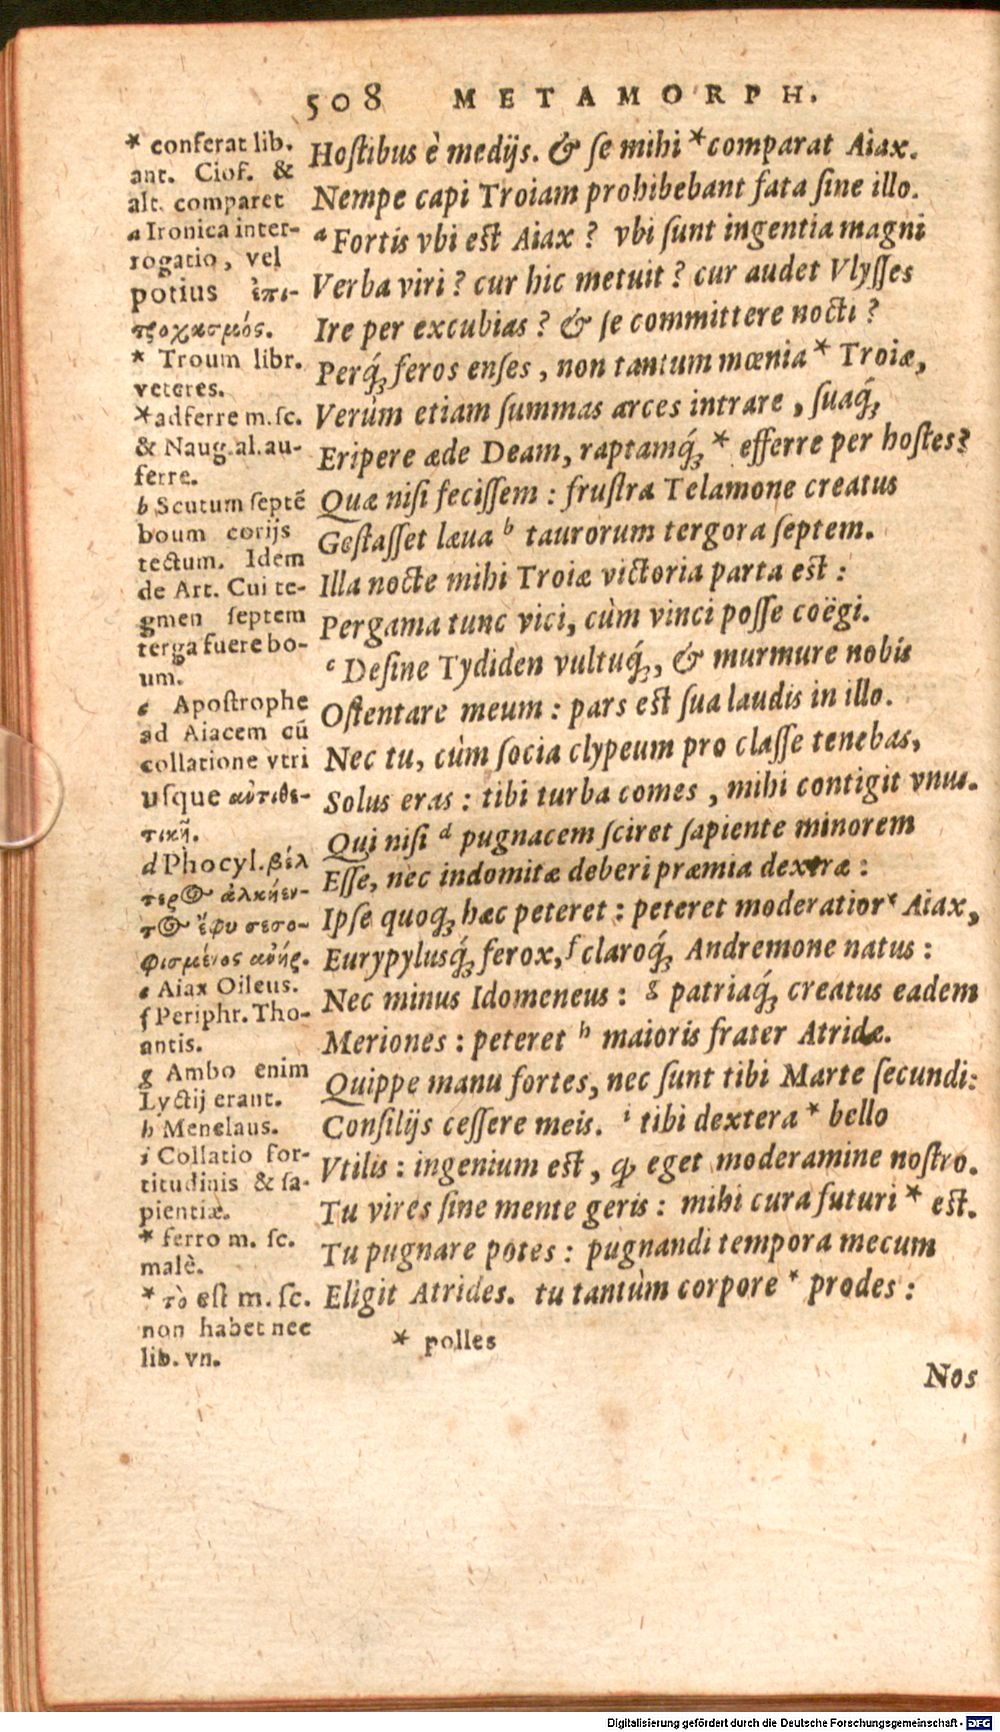 508 METAMORPH.
* conferat lib.
ant. Ciof. &
alt. comparet
a Ironica inter-
rogatio, vel
potius ἐπι-
τροχασμός.
* Troum libr.
veteres.
*adferre m. sc.
& Naug. al. au-
ferre.
b Scutum septẽ
boum corijs
tectum. Idem
de Art. Cui te-
gmen septem
terga fuere bo-
um.
c Apostrophe
ad Aiacem cũ
collatione vtri
usque ἀντιθε-
τικῆ.
d Phocyl. βέλ
τερος ἀλκήεν-
τος ἔφυ σεσο-
φισμένος
e Aiax Oileus.
f Periphr. Tho-
antis.
g Ambo enim
Lyctij erant.
h Menelaus.
i Collatio for-
titudinis & sa-
pientiæ.
* ferro m. sc.
malè.
* τὸ est m. sc.
non habet nec
lib. vn.
Hostibus è medijs. & se mihi *comparat Aiax.
Nempe capi Troiam prohibebant fata sine illo.
a Fortis vbi est Aiax? vbi sunt ingentia magni
Verba viri? cur hic metuit? cur audet Vlysses
Ire per excubias? & se committere nocti?
Perq́; feros enses, non tantum mœnia * Troiæ,
Verùm etiam summas arces intrare, suaq́;
Eripere æde Deam, raptamq́; * efferre per hostes?
Quæ nisi fecissem: frustra Telamone creatus
Gestasset læua b taurorum tergora septem.
Illa nocte mihi Troiæ victoria parta est:
Pergama tunc vici, cùm vinci posse coëgi.
c Desine Tydiden vultuq́;, & murmure nobis
Ostentare meum: pars est sua laudis in illo.
Nec tu, cùm socia clypeum pro classe tenebas,
Solus eras: tibi turba comes, mihi contigit vnus.
Qui nisi d pugnacem sciret sapiente minorem
Esse, nec indomitæ deberi præmia dextræ:
Ipse quoq; hæc peteret: peteret moderatior e Aiax,
Eurypylusq́; ferox, f claroq́; Andremone natus:
Nec minus Idomeneus: g patriaq́; creatus eadem
Meriones: peteret h maioris frater Atridæ.
Quippe manu fortes, nec sunt tibi Marte secundi:
Consilijs cessere meis. i tibi dextera * bello
Vtilis: ingenium est, ꝙ eget moderamine nostro.
Tu vires sine mente geris: mihi cura futuri * est.
Tu pugnare potes: pugnandi tempora mecum
Eligit Atrides. tu tantùm corpore * prodes:
* polles
Nos
Digitalisierung gefördert durch die Deutsche Forschungsgemeinschaft - DFG